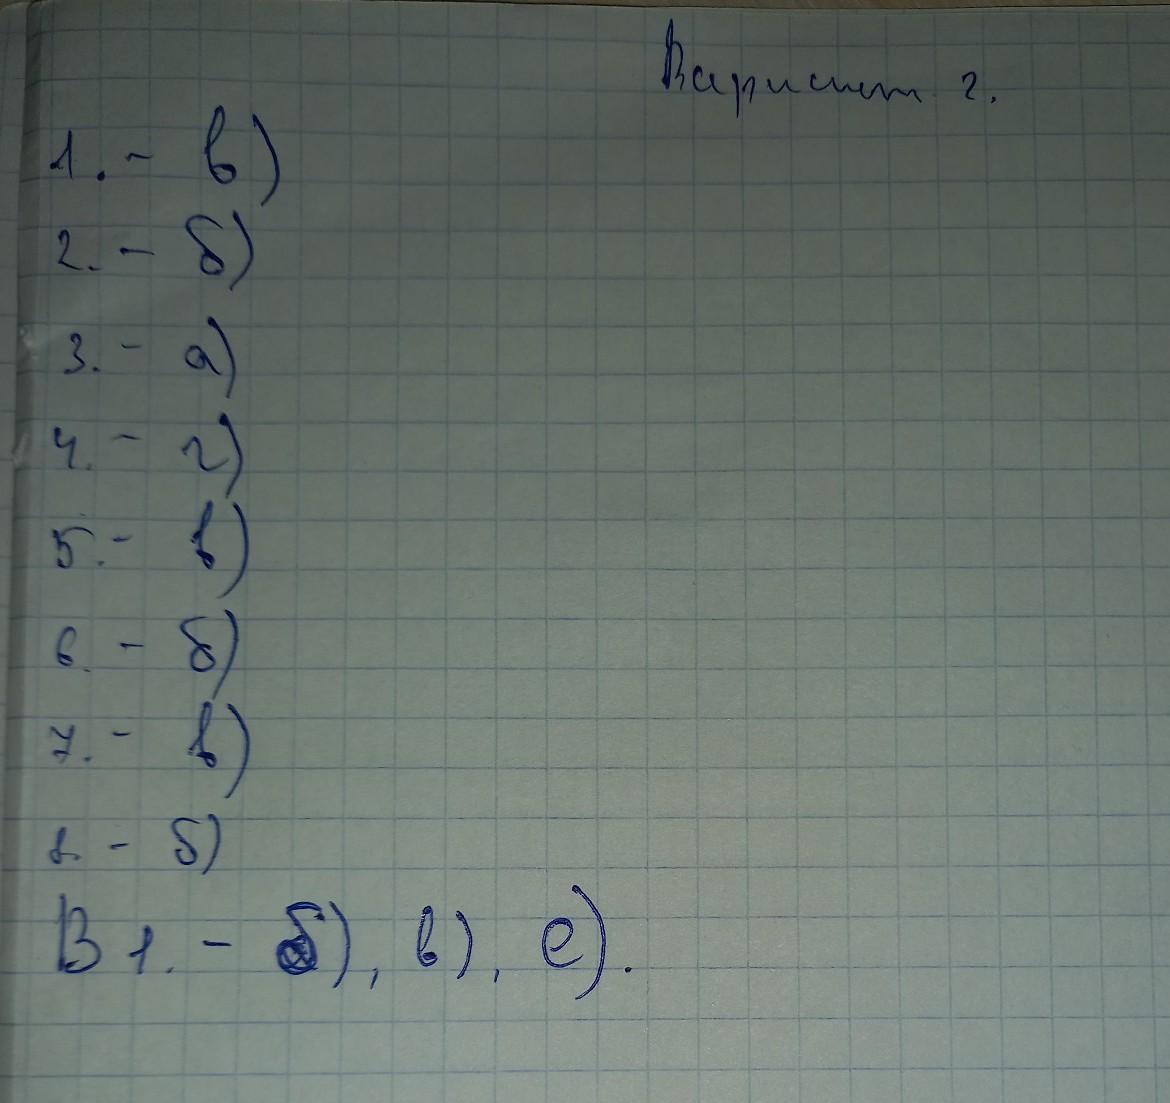 Вариант 2.
1. - в)
2. - б)
3. - а)
4. - г)
5. - в)
6. - б)
7. - в)
8. - б)
В 1. - б), в), е).